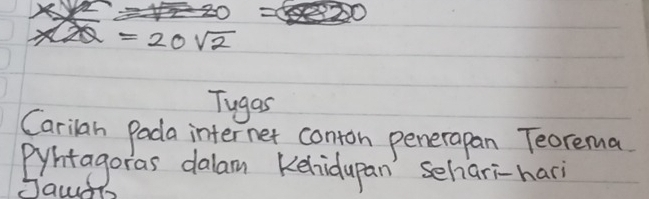 = 20
= 20√2
Tugas
Carilah pada internet contoh penerapan Teorema
Pyhtagoras dalam Kehidupan sehari-hari
Jawab